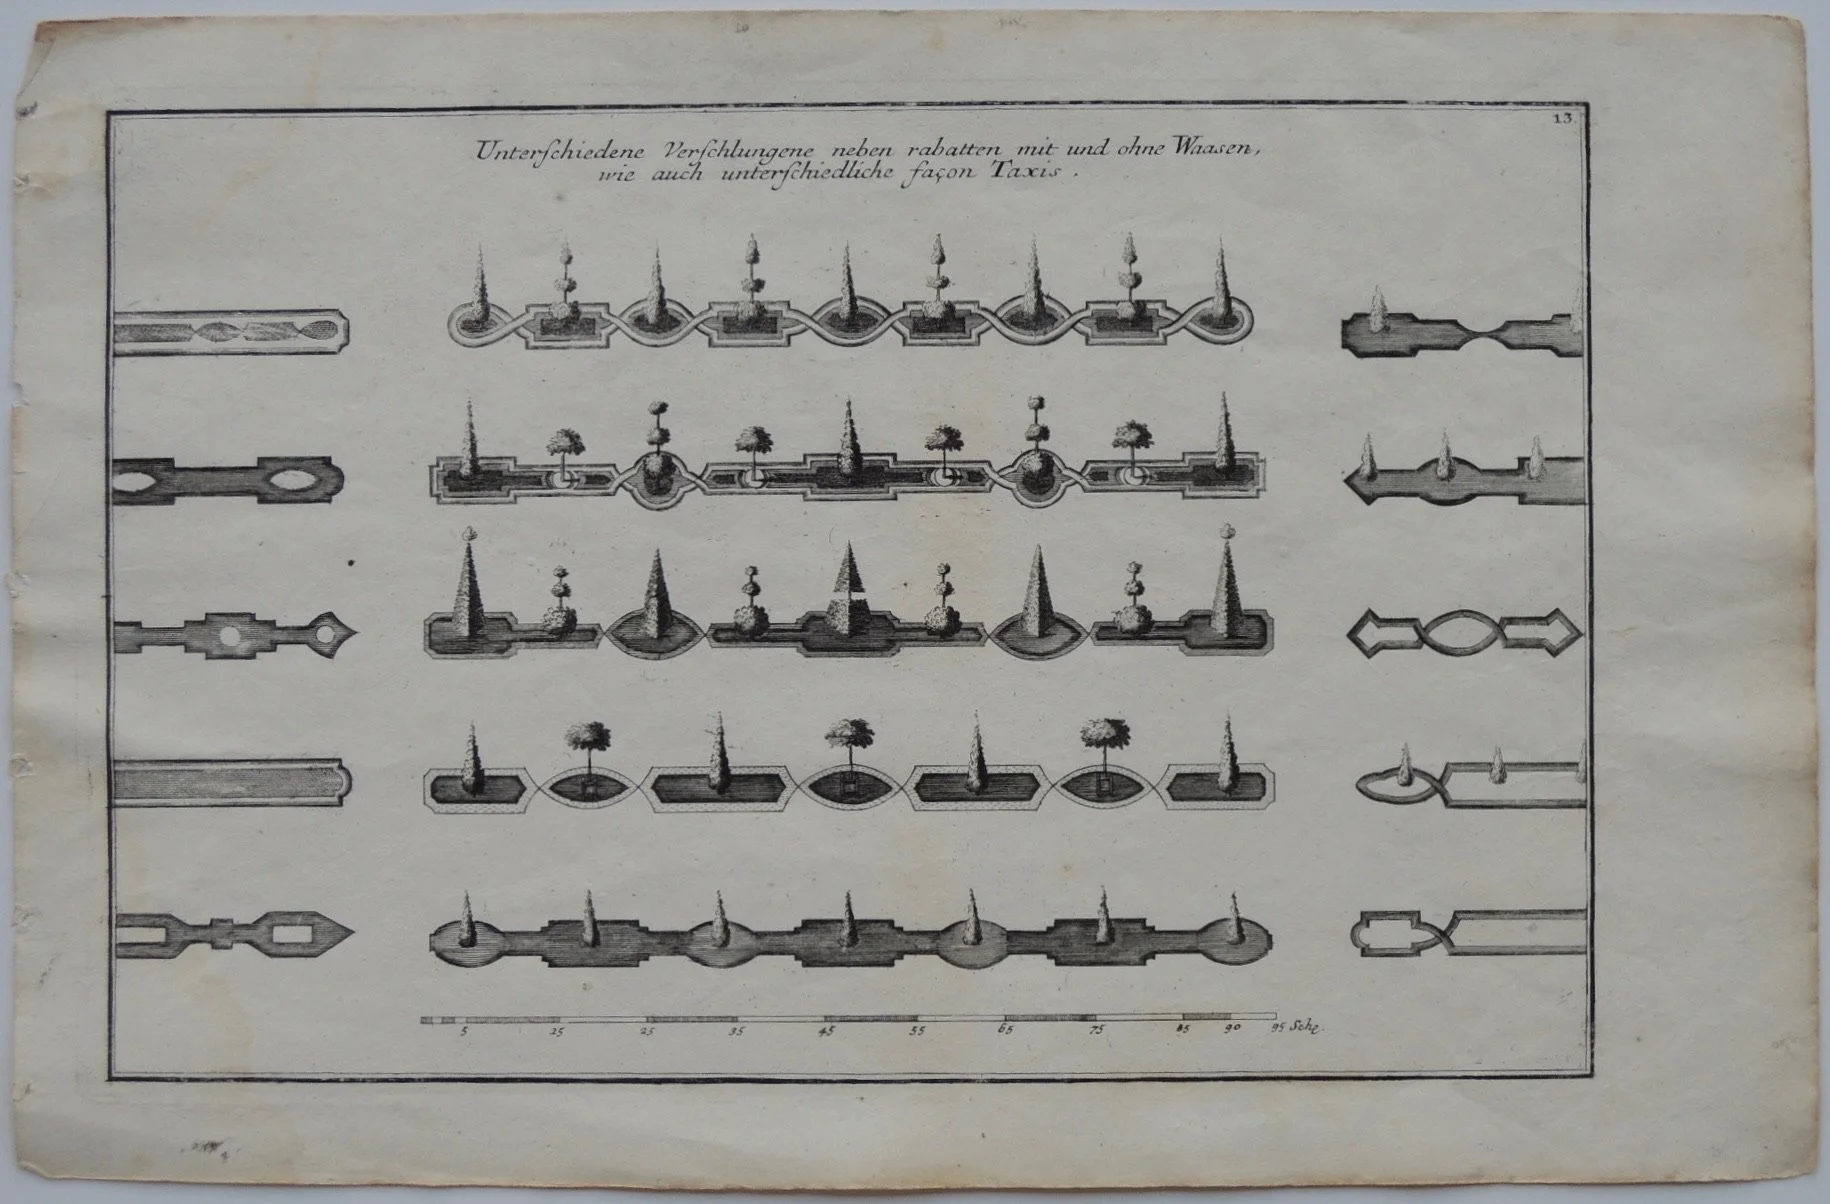 13
Unterſchiedene Verſchlungene neben rabatten mit und ohne Waasen,
wie auch unterſchiedliche façon Taxis.
5 15 25 35 45 55 65 75 85 90 95 Sche.